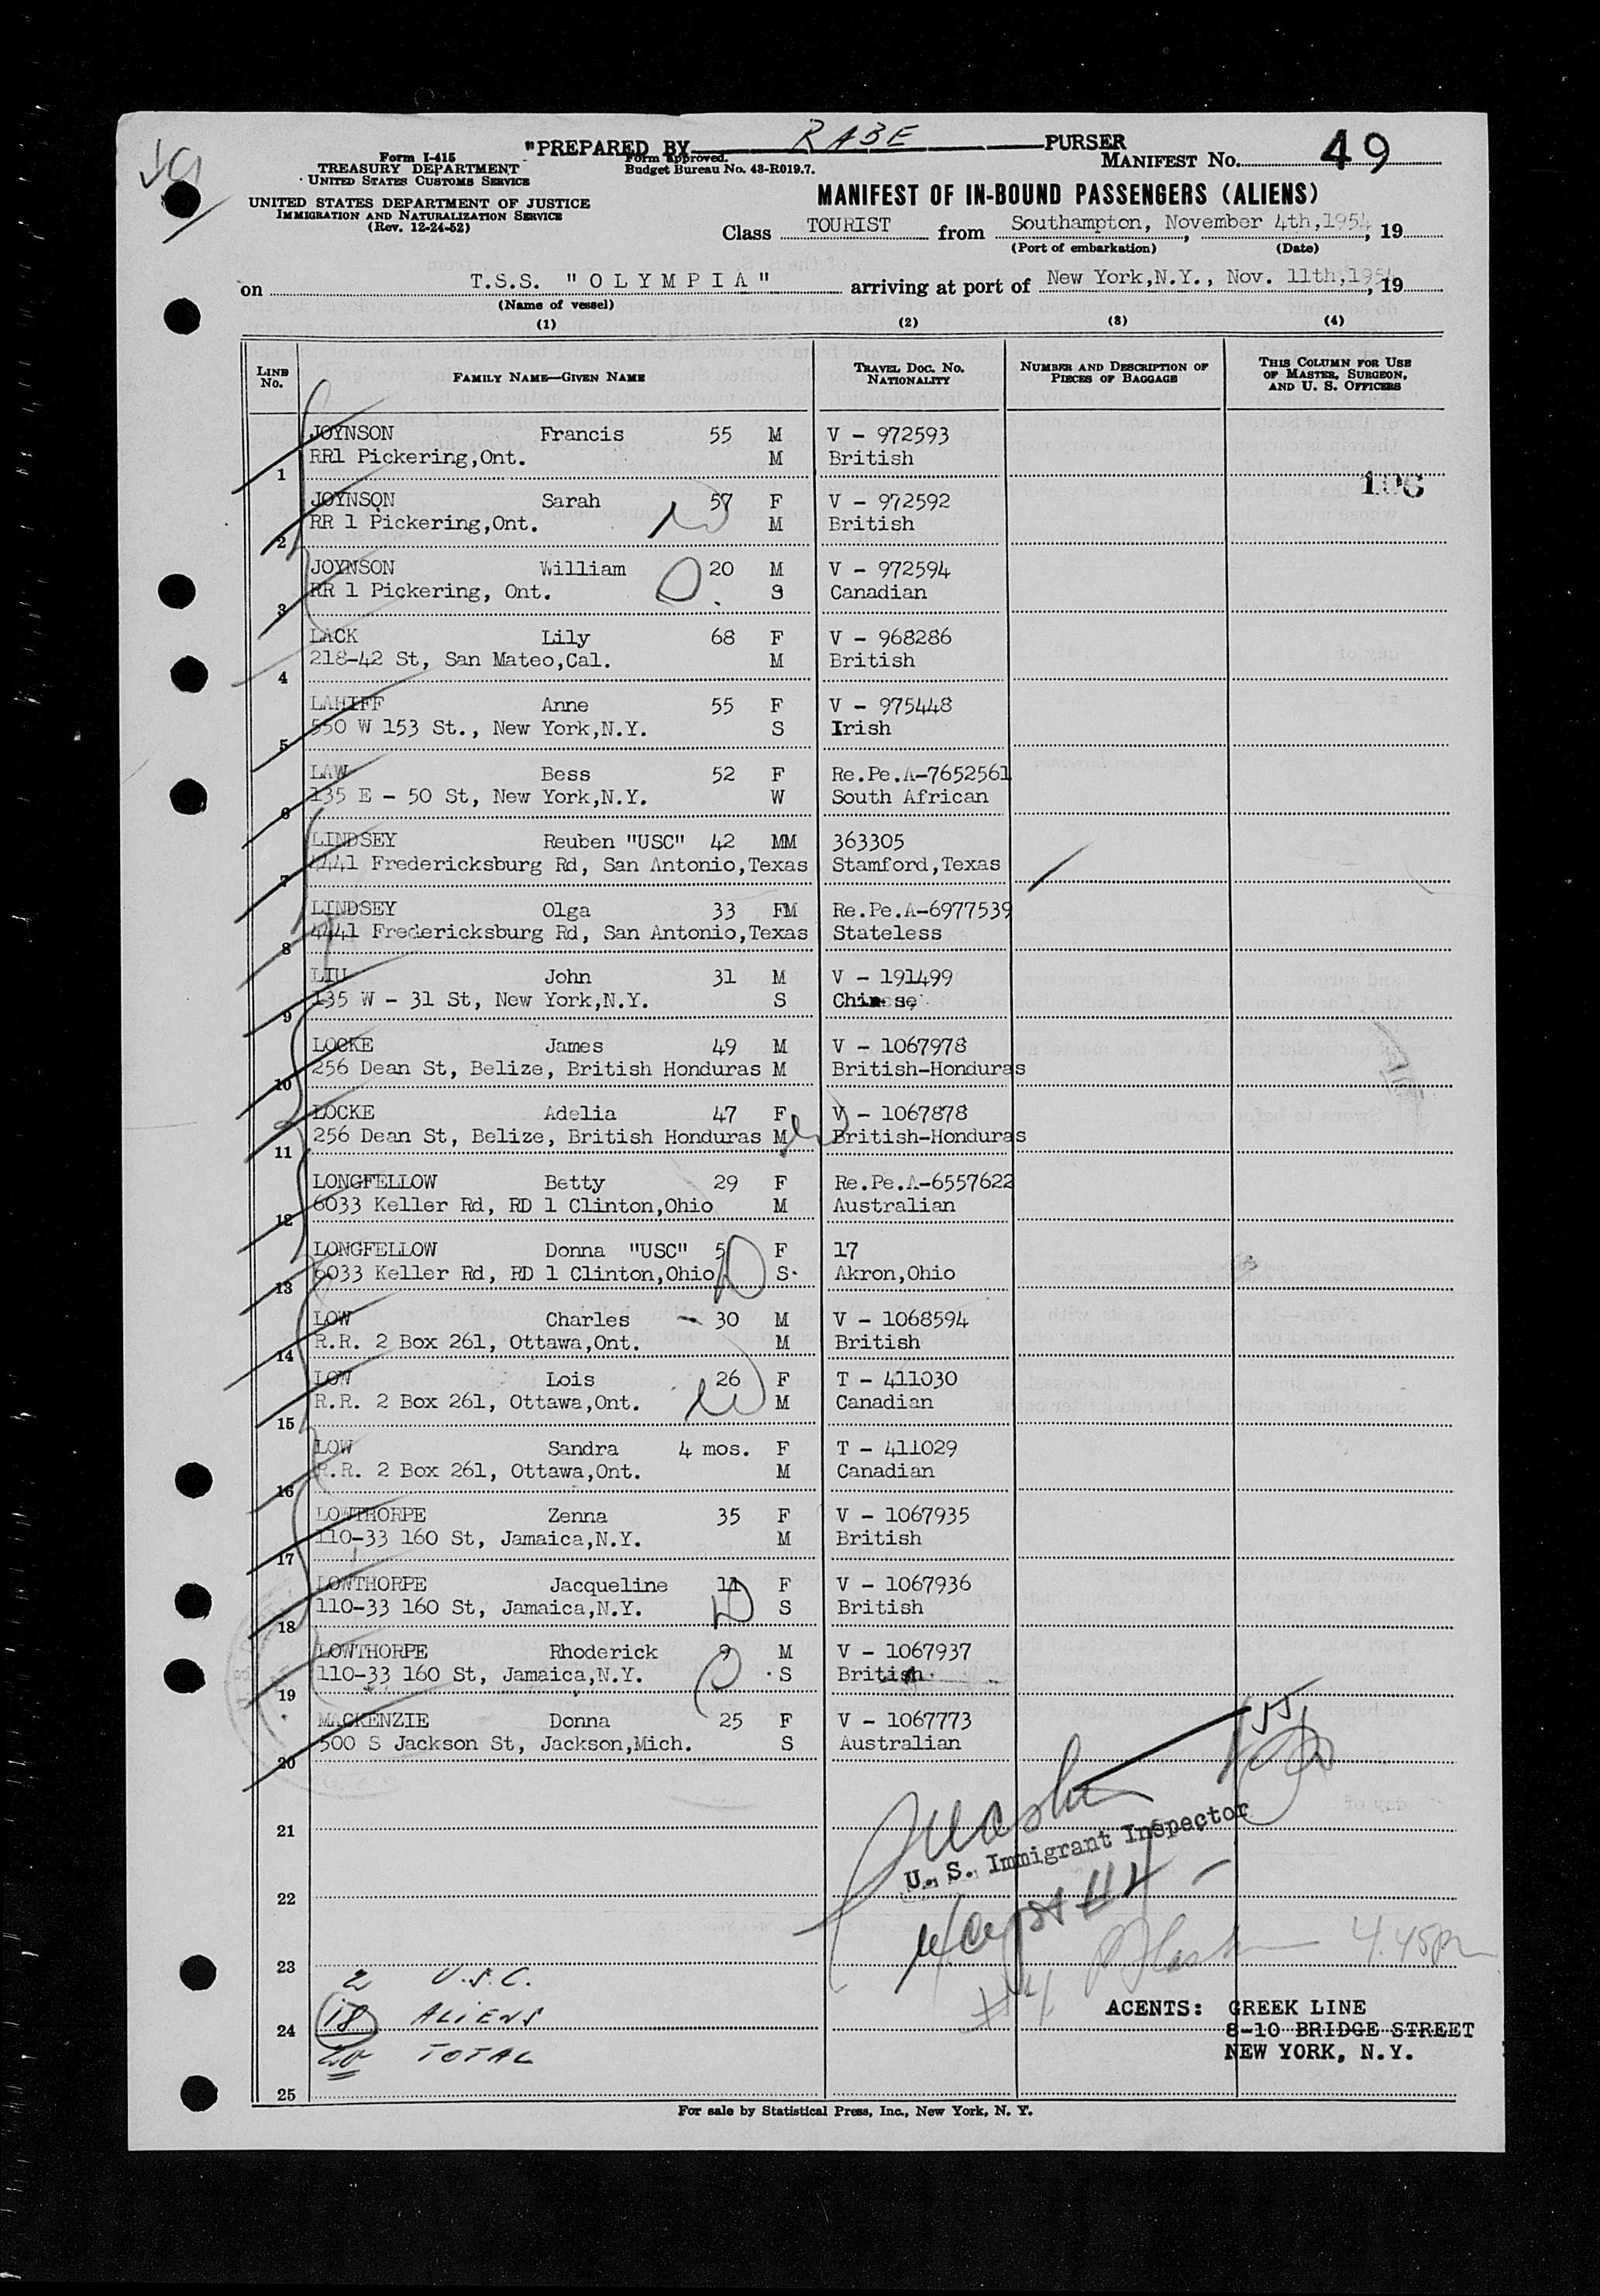 "PREPARED BY RABE PURSER
Form I-415
TREASURY DEPARTMENT
UNITED STATES CUSTOMS SERVICE
UNITED STATES DEPARTMENT OF JUSTICE
IMMIGRATION AND NATURALIZATION SERVICE
(Rev. 12-24-52)
Form approved.
Budget Bureau No. 43-R019.7.
MANIFEST NO. 49
MANIFEST OF IN-BOUND PASSENGERS (ALIENS)
Class TOURIST from Southampton, November 4th,1954, 19
(Port of embarkation) (Date)
on T.S.S. "OLYMPIA" arriving at port of New York,N.Y., Nov. 11th,1954, 19
(Name of vessel)
(1) (2) (3) (4)
LINE No. FAMILY NAME—GIVEN NAME TRAVEL DOC. NO. NATIONALITY NUMBER AND DESCRIPTION OF PIECES OF BAGGAGE THIS COLUMN FOR USE OF MASTER, SURGEON, AND U. S. OFFICERS
JOYNSON Francis 55 M V - 972593
1 RR1 Pickering,Ont. M British
106
JOYNSON Sarah 57 F V - 972592
2 RR 1 Pickering,Ont. M British
JOYNSON William 20 M V - 972594
3 RR 1 Pickering, Ont. S Canadian
LACK Lily 68 F V - 968286
4 218-42 St, San Mateo,Cal. M British
LAHIFF Anne 55 F V - 975448
5 550 W 153 St., New York,N.Y. S Irish
LAW Bess 52 F Re.Pe.A-7652561
6 135 E - 50 St, New York,N.Y. W South African
LINDSEY Reuben "USC" 42 MM 363305
7 4441 Fredericksburg Rd, San Antonio,Texas Stamford,Texas
LINDSEY Olga 33 FM Re.Pe.A-6977539
8 4441 Fredericksburg Rd, San Antonio,Texas Stateless
LIU John 31 M V - 191499
9 135 W - 31 St, New York,N.Y. S Chinese
LOCKE James 49 M V - 1067978
10 256 Dean St, Belize, British Honduras M British-Honduras
LOCKE Adelia 47 F V - 1067878
11 256 Dean St, Belize, British Honduras M British-Honduras
LONGFELLOW Betty 29 F Re.Pe.A-6557622
12 6033 Keller Rd, RD 1 Clinton,Ohio M Australian
LONGFELLOW Donna "USC" 5 F 17
13 6033 Keller Rd, RD 1 Clinton,Ohio S Akron,Ohio
LOW Charles 30 M V - 1068594
14 R.R. 2 Box 261, Ottawa,Ont. M British
LOW Lois 26 F T - 411030
15 R.R. 2 Box 261, Ottawa,Ont. M Canadian
LOW Sandra 4 mos. F T - 411029
16 R.R. 2 Box 261, Ottawa,Ont. M Canadian
LOWTHORPE Zenna 35 F V - 1067935
17 110-33 160 St, Jamaica,N.Y. M British
LOWTHORPE Jacqueline 11 F V - 1067936
18 110-33 160 St, Jamaica,N.Y. S British
LOWTHORPE Rhoderick 9 M V - 1067937
19 110-33 160 St, Jamaica,N.Y. S British
MACKENZIE Donna 25 F V - 1067773
20 500 S Jackson St, Jackson,Mich. S Australian
21
U. S. Immigrant Inspector
22
4.45pm
23
2 U.S.C.
24 18 ALIENS
20 TOTAL
25
ACENTS: GREEK LINE
8-10 BRIDGE STREET
NEW YORK, N.Y.
For sale by Statistical Press, Inc., New York, N. Y.